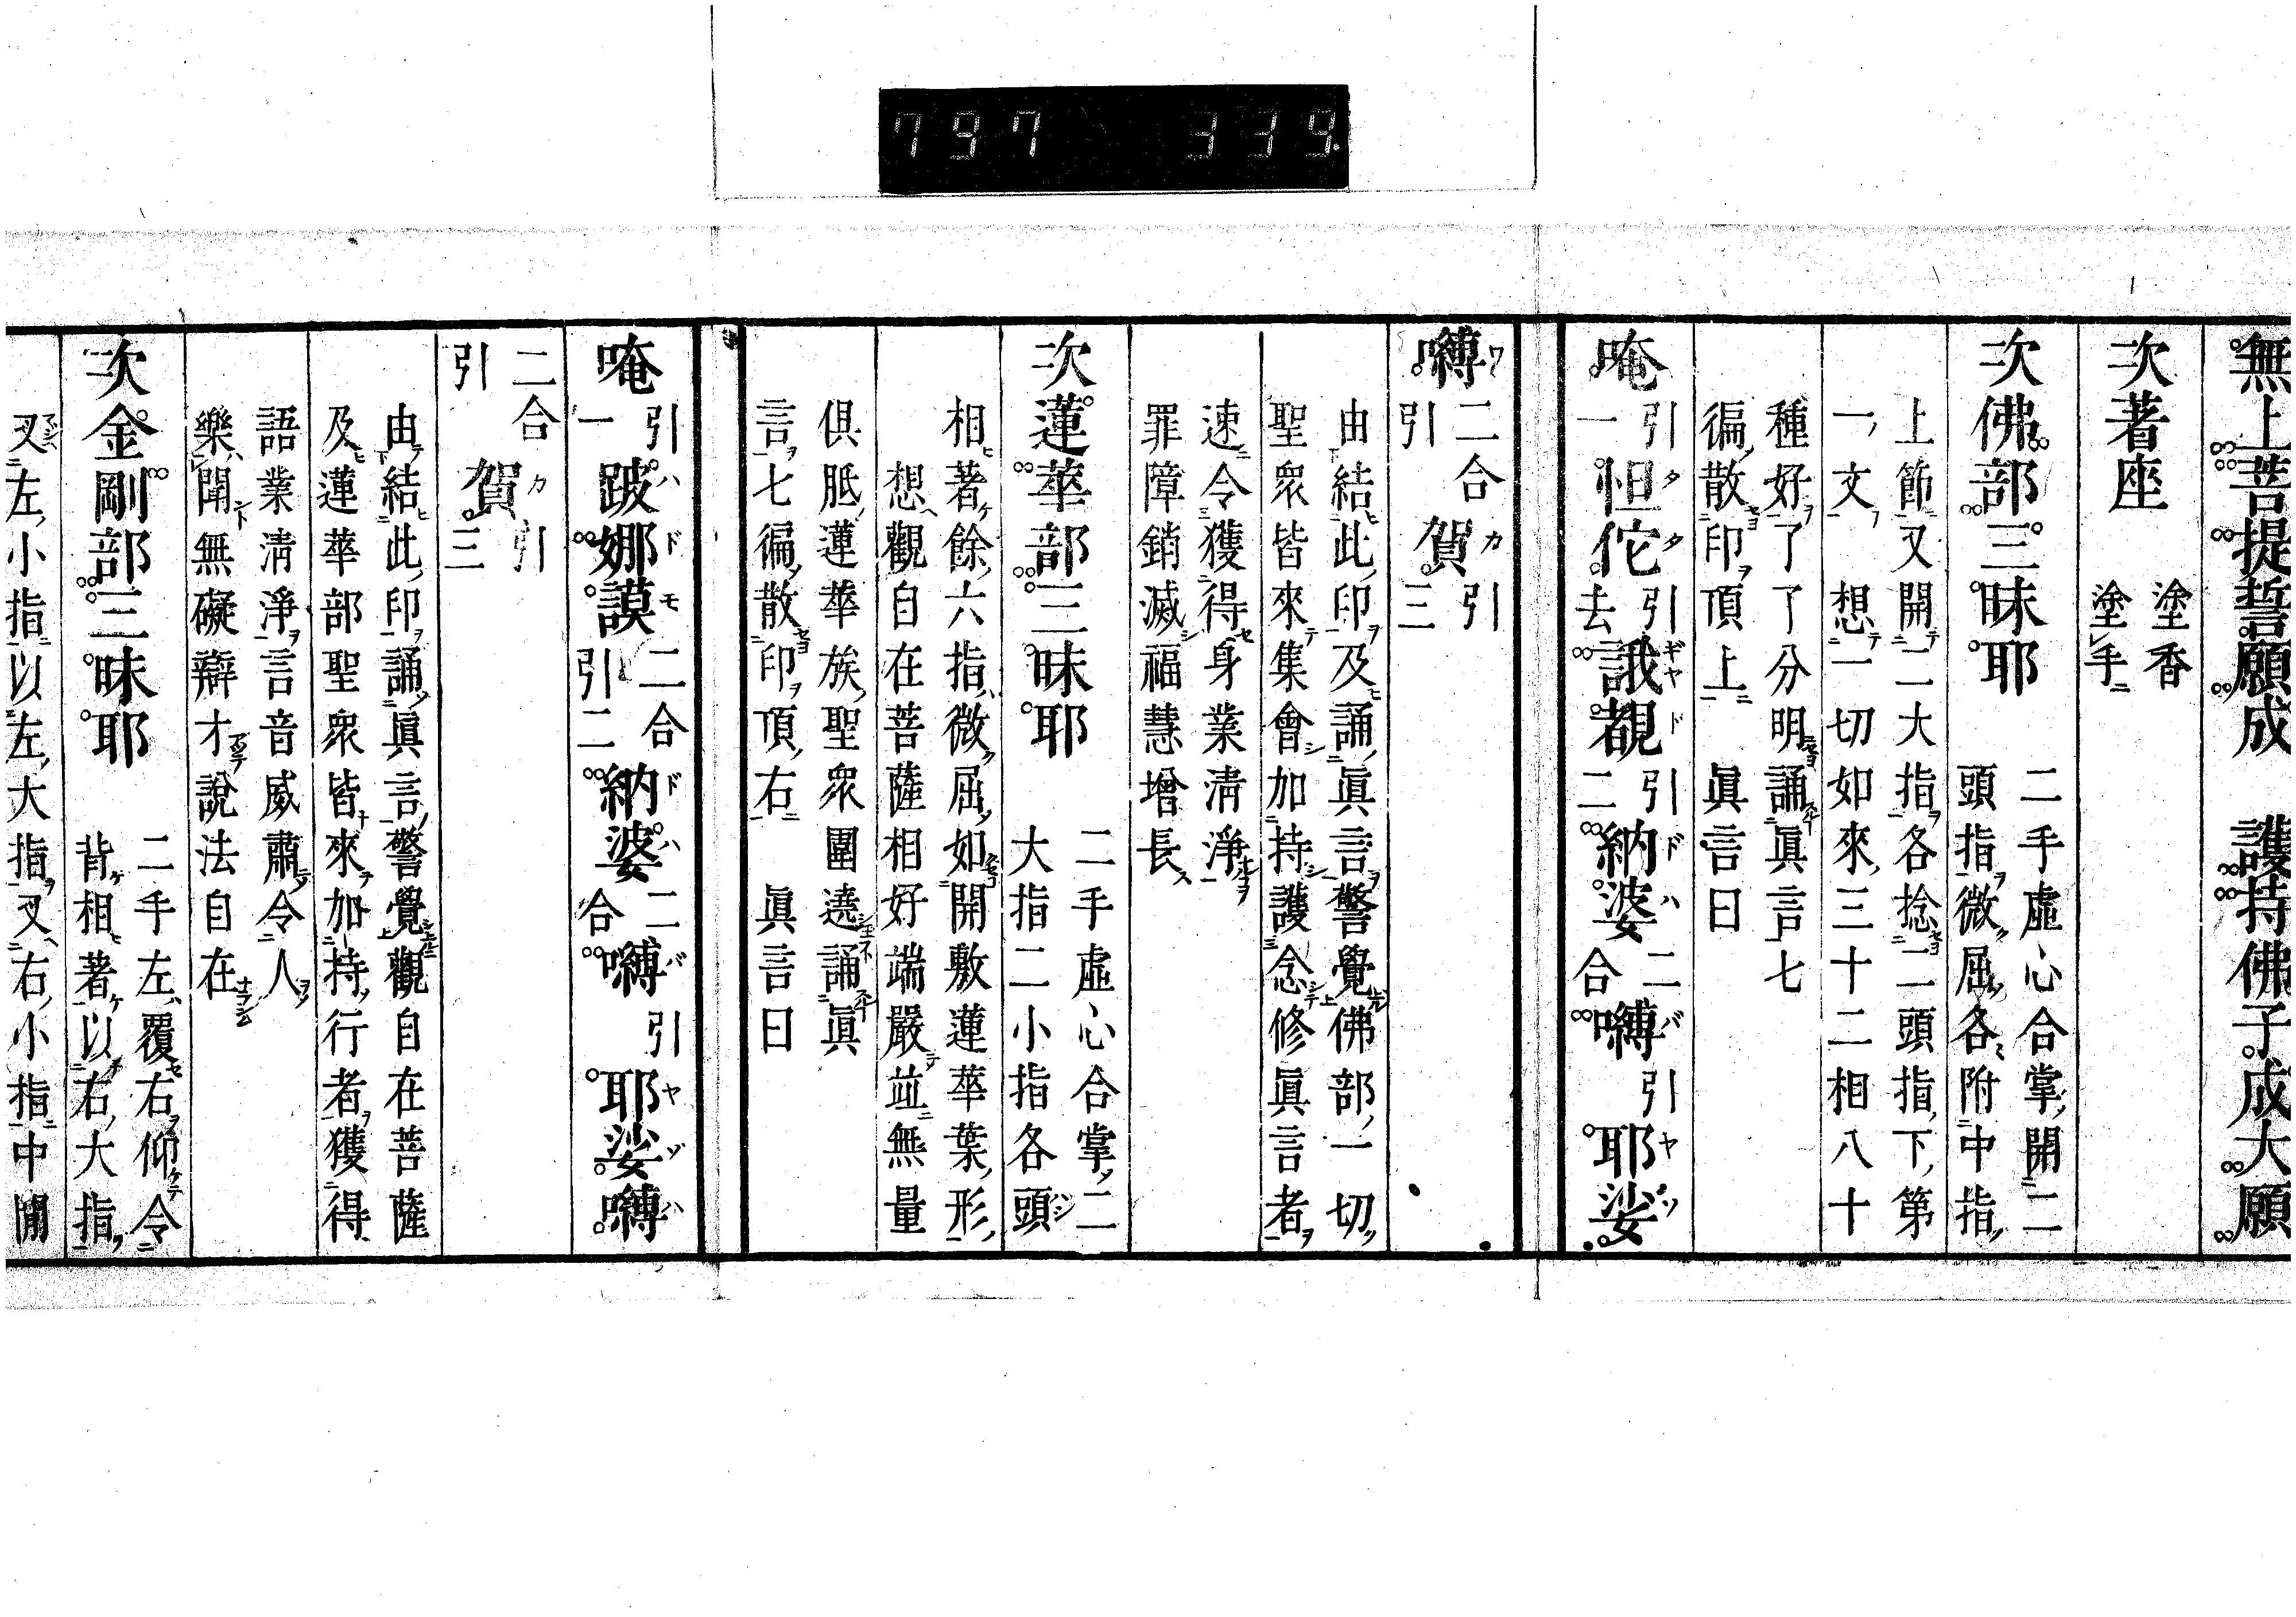 797 339
無上菩提誓願成 護持佛子成大願
次著座 塗香
塗手
次佛部三昧耶 二手虛心合掌開二
頭指微屈各附中指
上節又開二大指各捻二頭指下第
一文想一切如來三十二相八十
種好了了分明誦眞言七
徧散印頂上 眞言曰
唵引一怛佗引去誐覩引二納婆二合嚩引耶娑
嚩二合引賀引三
由結此印及誦眞言警覺佛部一切
聖衆皆來集會加持護念修眞言者
速令獲得身業淸淨
罪障銷滅福慧增長
次蓮華部三昧耶 二手虛心合掌二
大指二小指各頭
相著餘六指微屈如開敷蓮華葉形
想觀自在菩薩相好端嚴並無量
俱胝蓮華族聖衆圍遶誦眞
言七徧散印頂右 眞言曰
唵引一跛娜謨二合引二納婆二合嚩引耶娑嚩
二合引賀引三
由結此印誦眞言警覺觀自在菩薩
及蓮華部聖衆皆來加持行者獲得
語業淸淨言音威肅令人
樂聞無礙辯才說法自在
次金剛部三昧耶 二手左覆右仰令
背相著以右大指
叉左小指以左大指叉右小指中間